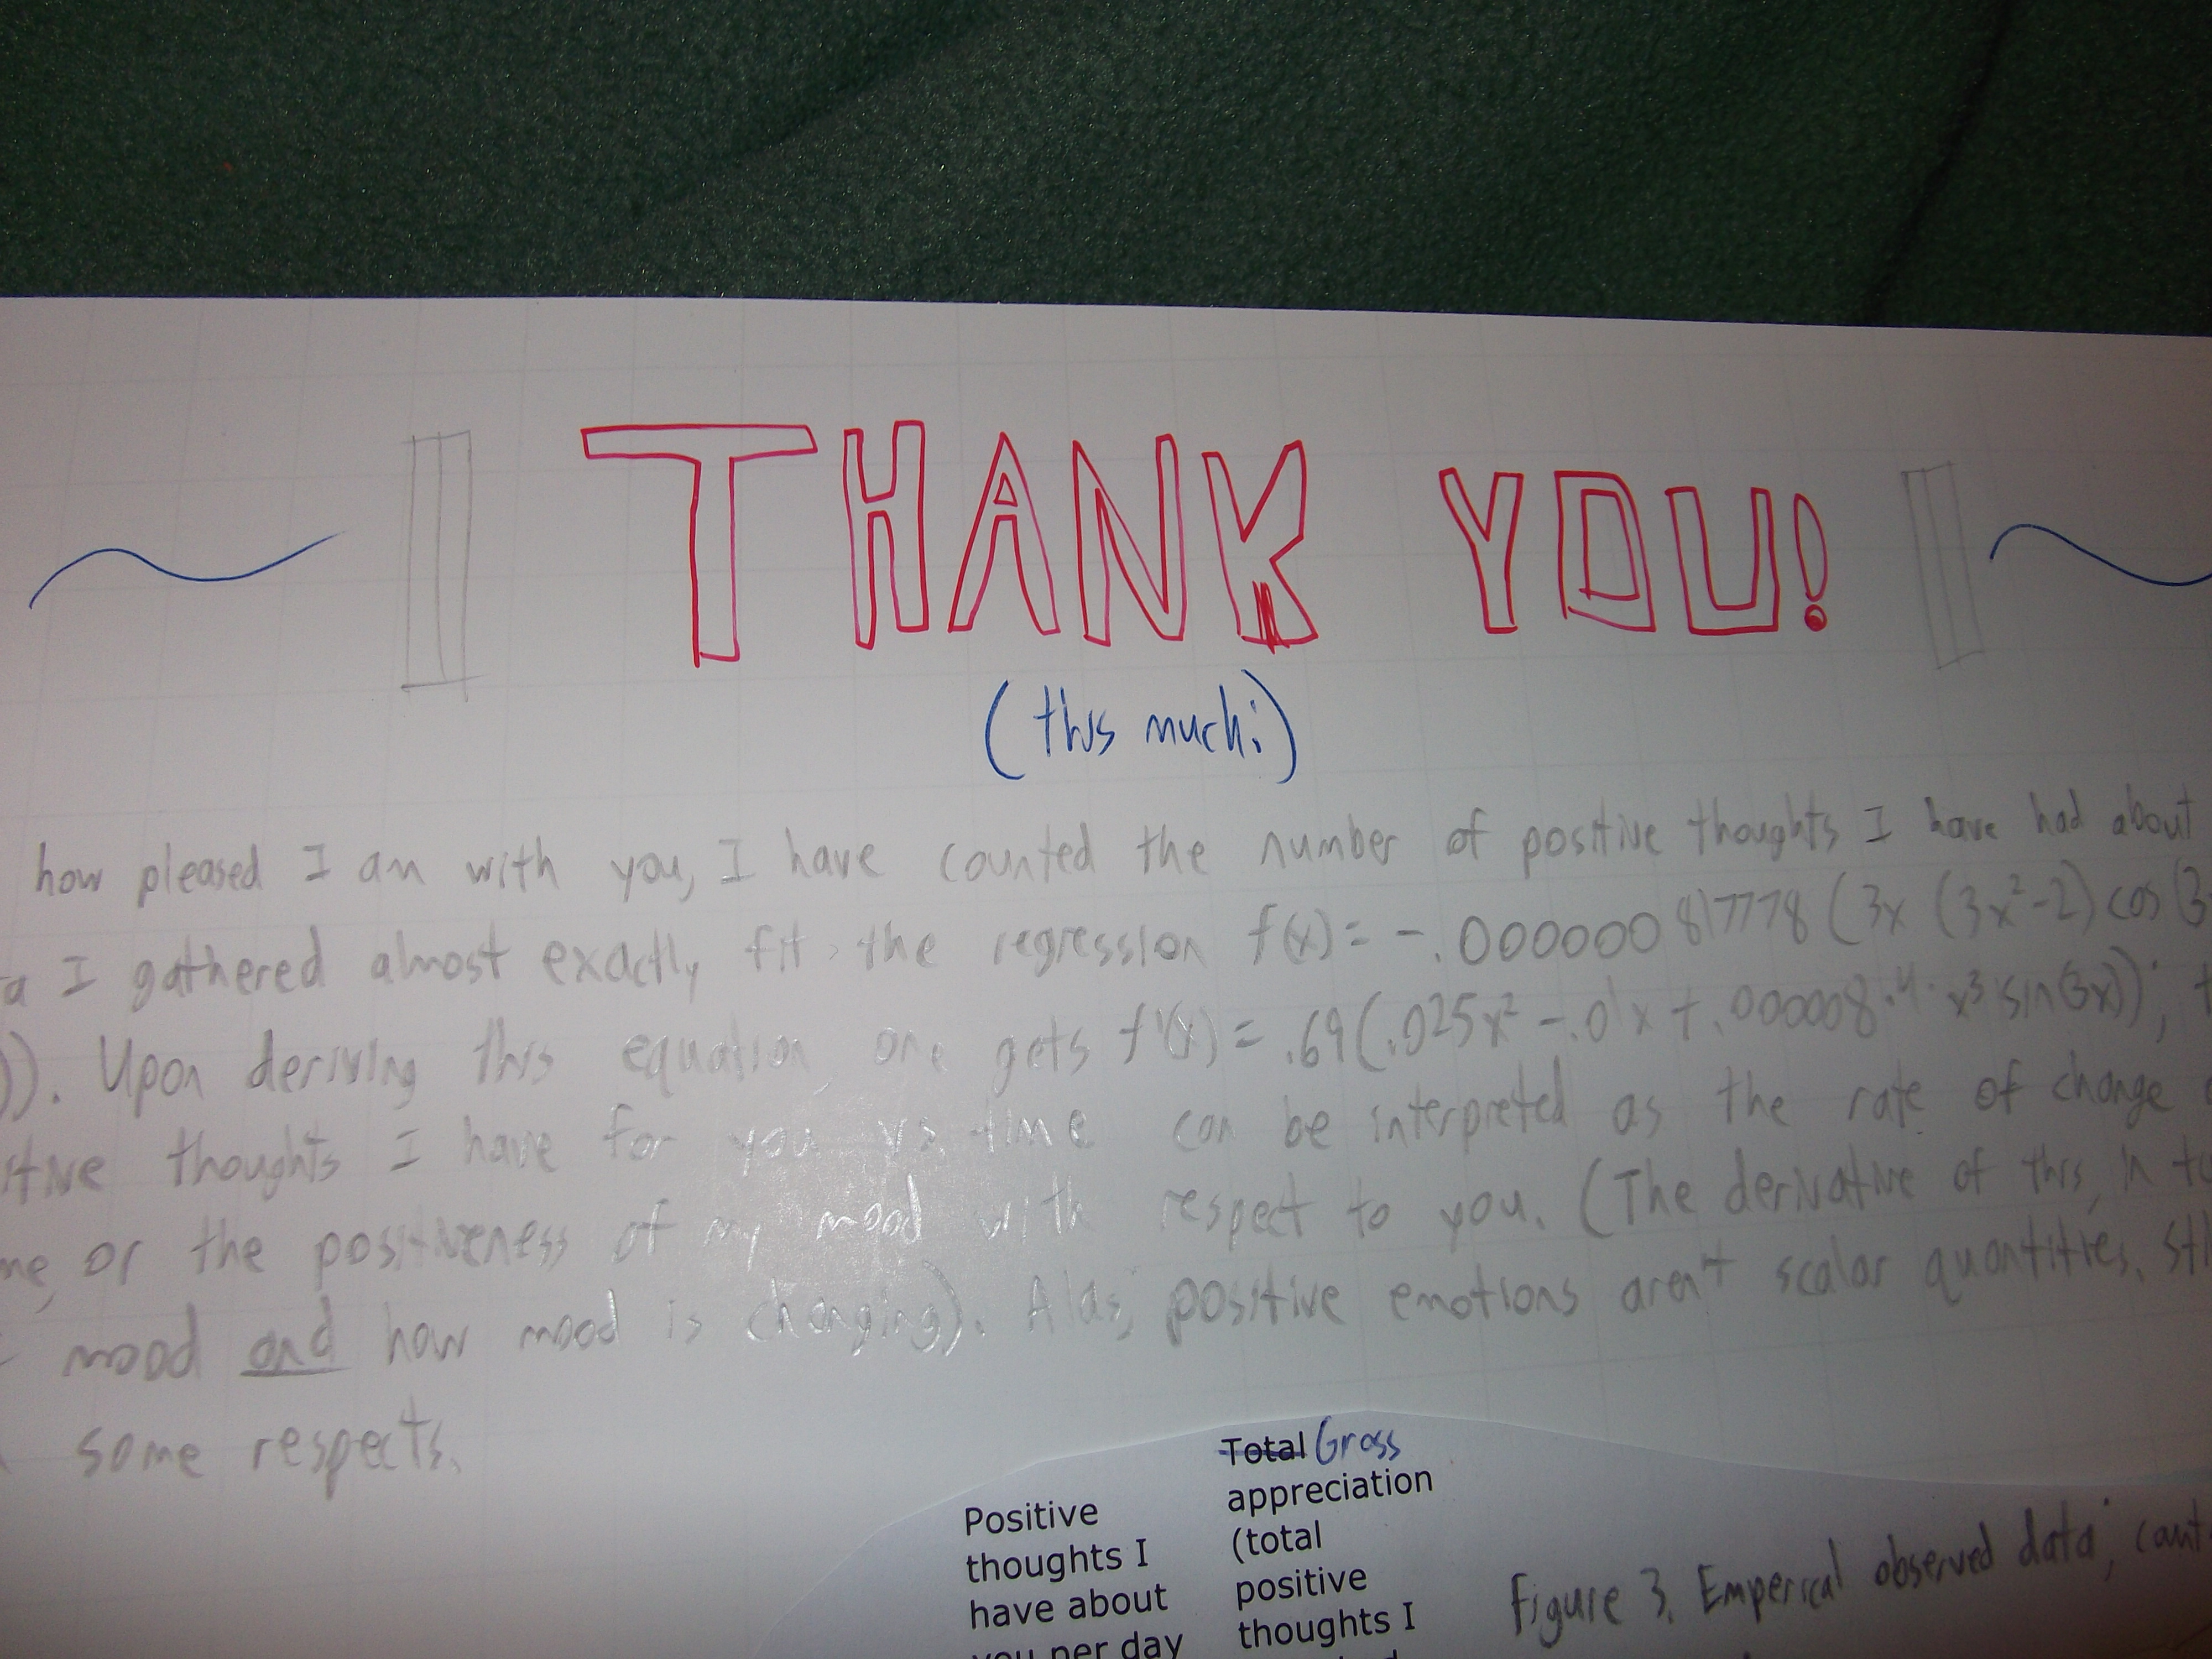 THANK YOU!
(this much:)
how pleased I am with you, I have counted the number of positive thoughts I have had about
a I gathered almost exactly fit the regression f(x) = -.000000817778 (3x (3x²-2) cos (3
)). Upon deriving this equation, one gets f'(x) = .69(.025x² - .01x + .000008·4· x³ sin(3x));
itive thoughts I have for you vs. time can be interpreted as the rate of change
me, or the positiveness of my mood with respect to you. (The derivative of this, in
mood and how mood is changing). Alas, positive emotions aren't scalar quantities.
some respects.
Positive
thoughts I
have about
you per day
Total Gross
appreciation
(total
positive
thoughts I
Figure 3. Emperical observed data;